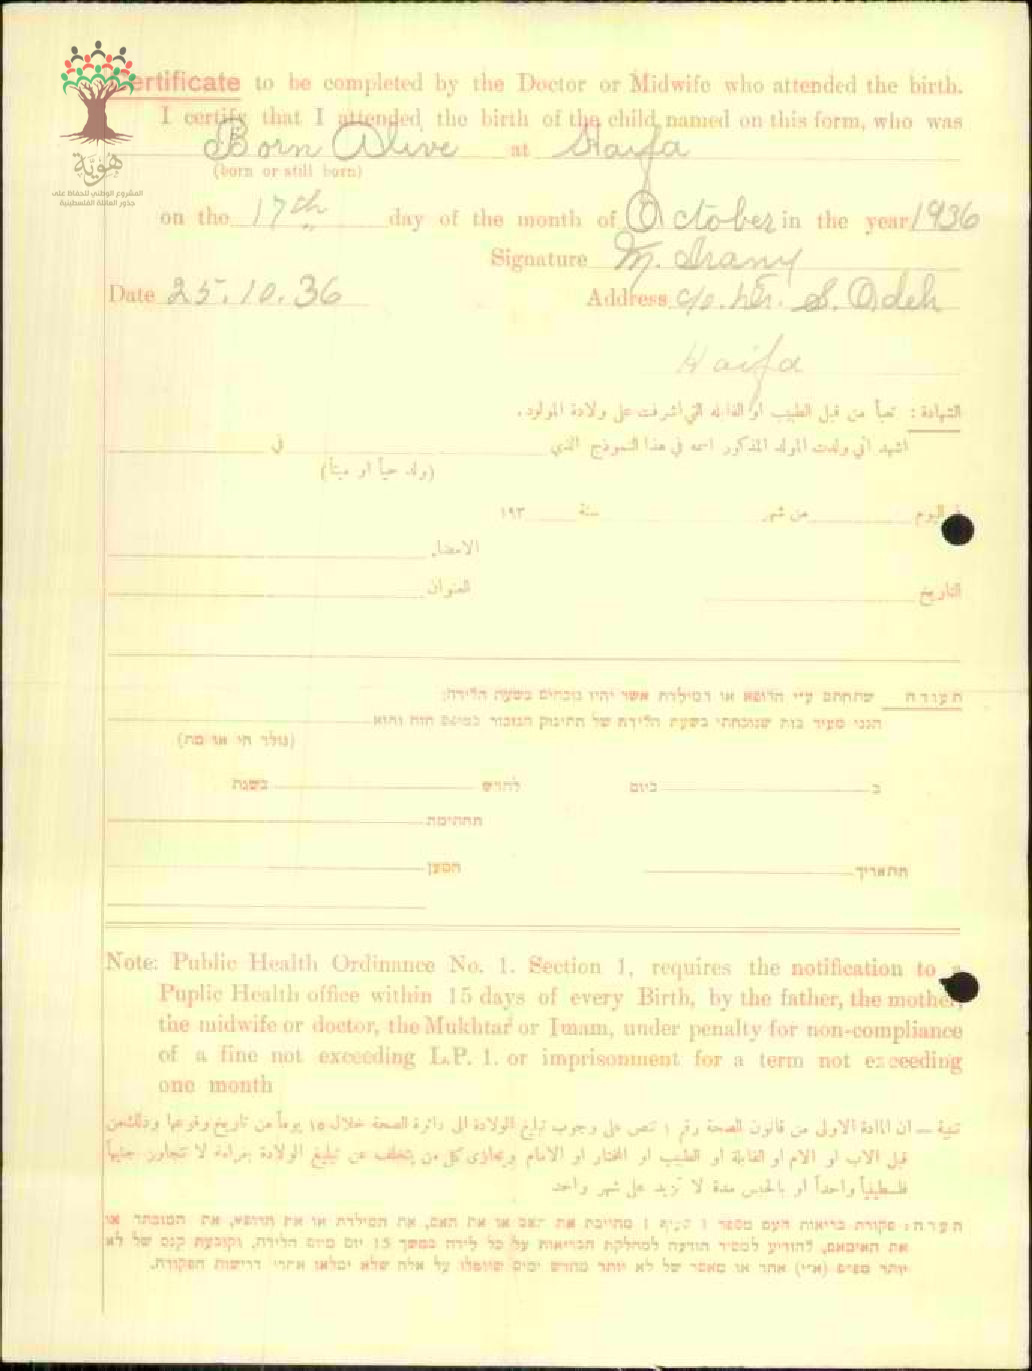 هُوِيَّة
المشروع الوطني للحفاظ على
جذور العائلة الفلسطينية
ertificate to be completed by the Doctor or Midwife who attended the birth.
I certify that I attended the birth of the child named on this form, who was
Born Alive at Haifa
(born or still born)
on the 17th day of the month of October in the year 1936
Signature M. Irany
Date 25.10.36 Address c/o. Dr. S. Odeh
Haifa
الشهادة : تعبأ من قبل الطبيب او القابله التي اشرفت على ولادة المولود.
اشهد اني ولدت المولد المذكور اسمه في هذا النموذج الذي في
(ولد حياً او ميتاً)
اليوم من شهر سنة ١٩٣
الامضاء
التاريخ العنوان
תעודה שתחתם ע״י הרופא או המילדת אשר יהיו נוכחים בשעת הלידה:
הנני מעיד בזה שנוכחתי בשעת הלידה של התינוק הנזכור בטופס הזה והוא
(נולד חי או מת)
ב ביום לחדש בשנת
החתימה
התאריך המען
Note: Public Health Ordinance No. 1. Section 1, requires the notification to a
Puplic Health office within 15 days of every Birth, by the father, the mother,
the midwife or doctor, the Mukhtar or Imam, under penalty for non-compliance
of a fine not exceeding L.P. 1. or imprisonment for a term not exceeding
one month
تنبيه — ان المادة الاولى من قانون الصحة رقم ١ تنص على وجوب تبليغ الولادة الى دائرة الصحة خلال ١٥ يوماً من تاريخ وقوعها وذلك من
قبل الاب او الام او القابلة او الطبيب او المختار او الامام ويجازى كل من يتخلف عن تبليغ الولادة بغرامة لا تتجاوز جنيهاً
فلسطينياً واحداً او بالحبس مدة لا تزيد على شهر واحد
הערה: פקודת בריאות העם מספר 1 סעיף 1 מחייבת את האב או את האם, את המילדת או את הרופא, את המוכתר או
את האימאם, להודיע למשרד הודעה למחלקת הבריאות על כל לידה במשך 15 יום מיום הלידה, וקובעת קנס של לא
יותר מפ״פ (א״י) אחד או מאסר של לא יותר מחדש ימים שיוטלו על אלה שלא ימלאו אחרי דרישות הפקודה.